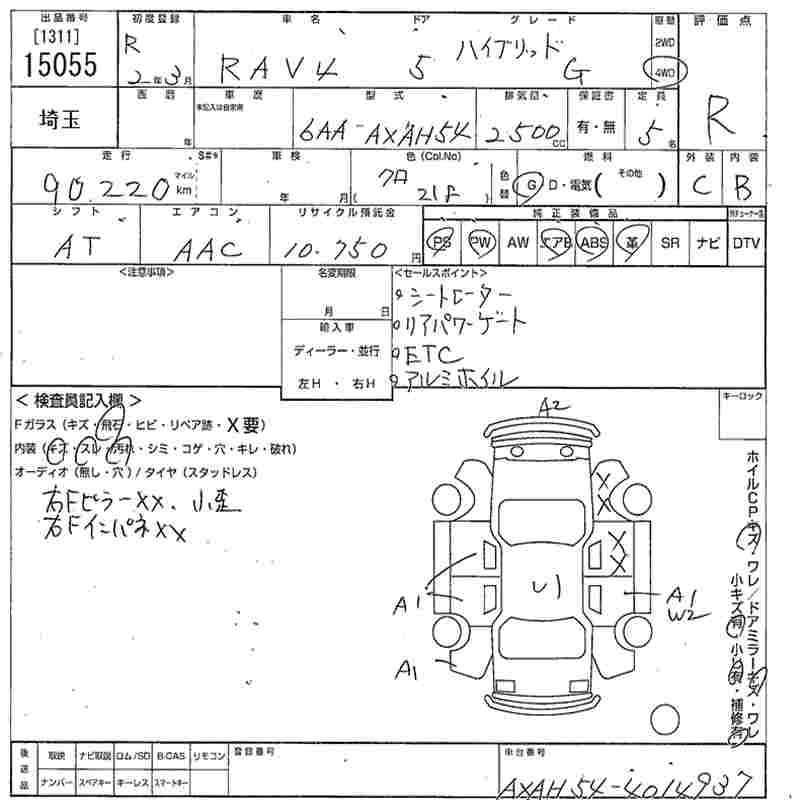 出品番号 初度登録 車名 ドア グレード 駆動 評価点
[1311] 15055 R 2年3月 RAV4 5 ハイブリッド G 2WD 4WD R
埼玉 西暦 年 車歴 未記入は自家用 型式 排気量 保証書 定員
6AA-AXAH54 2500cc 有・無 5名
走行 S#9 車検 色(Col.No) 色替 燃料 外装 内装
90.220 マイル km 年 月 クロ 218 G D・電気( その他 ) C B
シフト エアコン リサイクル預託金 純正装備品
AT AAC 10.750円 PS PW AW エアB ABS 革 SR ナビ DTV
<注意事項> 名変期限 <セールスポイント>
月 日 ・シートヒーター
輸入車 ・リアパワーゲート
ディーラー・並行 ・ETC
左H ・ 右H ・アルミホイル
<検査員記入欄> キーロック
Fガラス(キズ・飛石・ヒビ・リペア跡・X要) A2
内装(キズ・スレ・汚れ・シミ・コゲ・穴・キレ・破れ)
オーディオ(無し・穴)/タイヤ(スタッドレス)
右FピラーXX、小歪 X X
右FインパネXX X X
A1 U1 A1 W2
A1
ホイルCP・キズ・ワレ/ドアミラーキズ・ワレ
小キズ有 小凹有・補修有
後送品 取説 ナビ取説 ロム/SD B-CAS リモコン 登録番号 車台番号
ナンバー スペアキー キーレス スマートキー AXAH54-4014937